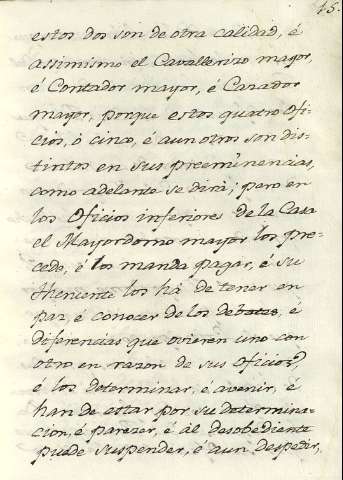 15.
estos dos son de otra calidad, é
assimismo el Cavallerizo mayor,
é Contador mayor, é Cazador
mayor, porque estos quatro Ofi-
cios, ò cinco, é aun otros son dis-
tintos en sus preeminencias,
como adelante se dirà; pero en
los Oficios inferiores de la Casa
el Mayordomo mayor los pre-
cede, é los manda pagar, é su
Theniente los hà de tener en
paz, é conocer de los debates, é
diferencias que ovieren uno con
otro en razon de sus Oficios,
é los determinar, é avenir, é
han de estar por su determina-
cion, é parezer, é al desobediente
puede suspender, é aun despedir,